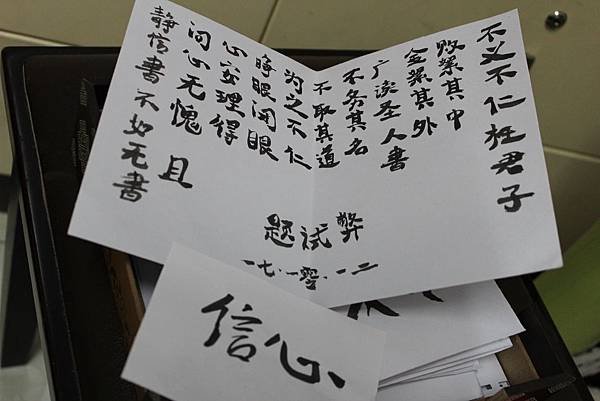 不义不仁枉君子
败絮其中
金絮其外
广读圣人书
不务其名
不取其道
为之不仁
時眼闭眼
心安理得
问心无愧 且
静信书不如无書
题试弊
一七·一零·一二
信心